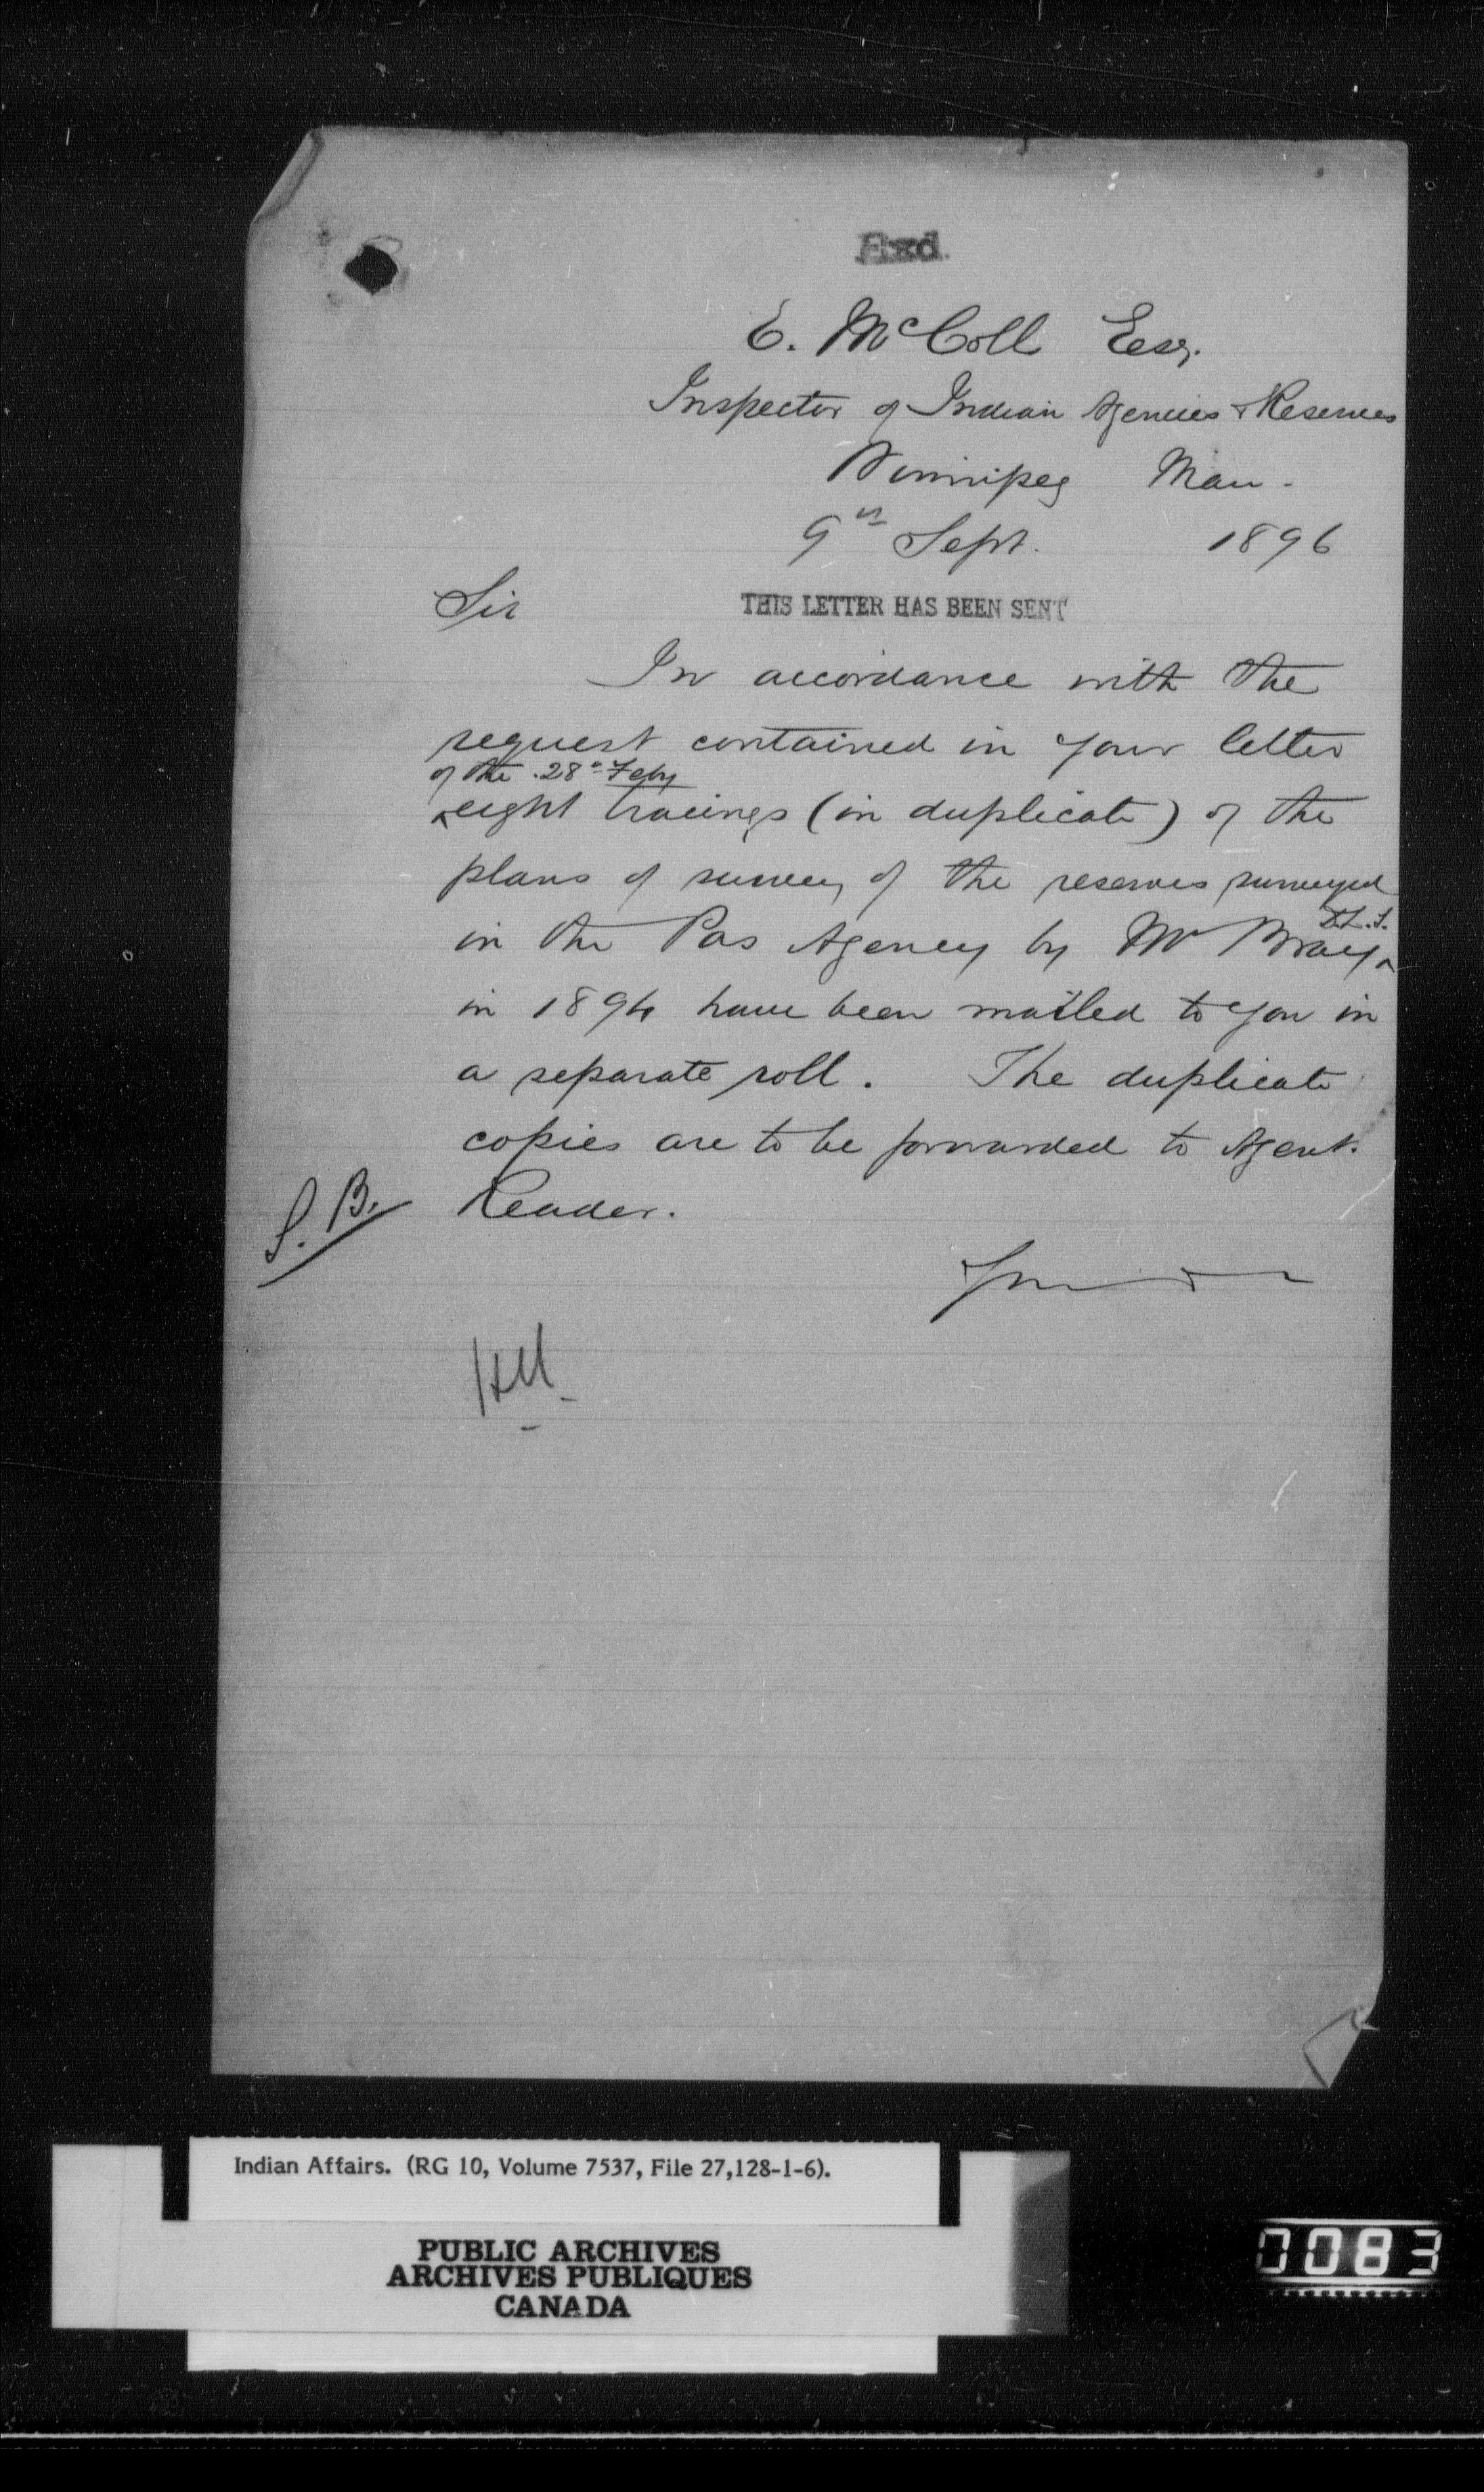 Exd.
E. McColl Esq.
Inspector of Indian Agencies & Reserves
Winnipeg Man.
9th Sept. 1896
Sir
THIS LETTER HAS BEEN SENT
In accordance with the
request contained in your letter
of the 28th Feby
eight tracings (in duplicate) of the
plans of survey of the reserves surveyed
D.L.S.
in the Pas Agency by Mr Bray
in 1894 have been mailed to you in
a separate roll. The duplicate
copies are to be forwarded to Agent
Reader.
S. B.
Indian Affairs. (RG 10, Volume 7537, File 27,128-1-6).
PUBLIC ARCHIVES
ARCHIVES PUBLIQUES
CANADA
0083